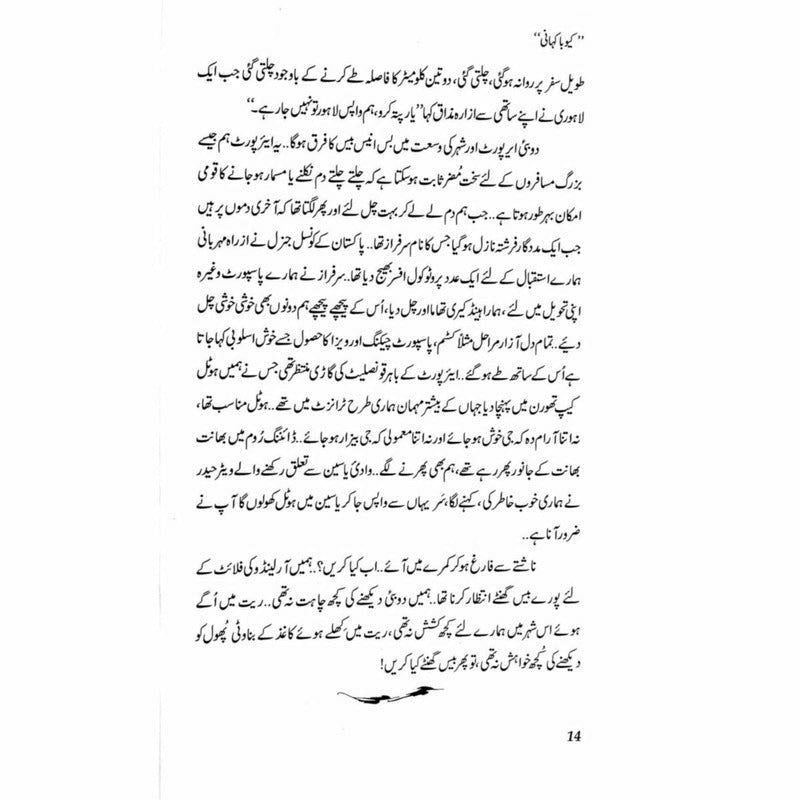 ’’کیوبا کہانی‘‘
طویل سفر پر روانہ ہو گئی، چلتی گئی، دو تین کلومیٹر کا فاصلہ طے کرنے کے باوجود چلتی گئی جب ایک
لاہوری نے اپنے ساتھی سے ازارہ مذاق کہا ’’یار پتہ کرو، ہم واپس لاہور تو نہیں جا رہے۔‘‘
دوبئی ایرپورٹ اور شہر کی وسعت میں بس انیس بیس کا فرق ہوگا.. یہ ایئرپورٹ ہم جیسے
بزرگ مسافروں کے لئے سخت مُضر ثابت ہو سکتا ہے کہ چلتے چلتے دم نکلنے یا مسمار ہو جانے کا قومی
امکان بہر طور ہوتا ہے.. جب ہم دم لے لے کر بہت چل لئے اور پھر لگتا تھا کہ آخری دموں پر ہیں
جب ایک مددگار فرشتہ نازل ہو گیا جس کا نام سرفراز تھا.. پاکستان کے کونسل جنرل نے ازراہ مہربانی
ہمارے استقبال کے لئے ایک عدد پروٹوکول افسر بھیج دیا تھا.. سرفراز نے ہمارے پاسپورٹ وغیرہ
اپنی تحویل میں لئے، ہمارا ہینڈ کیری تھاما اور چل دیا، اُس کے پیچھے پیچھے ہم دونوں بھی خوشی خوشی چل
دیئے.. تمام دل آزار مراحل مثلاً کسٹم، پاسپورٹ چیکنگ اور ویزا کا حصول جسے خوش اسلوبی کہا جاتا
ہے اُس کے ساتھ طے ہو گئے.. ایئرپورٹ کے باہر قونصلیٹ کی گاڑی منتظر تھی جس نے ہمیں ہوٹل
کیپ تھورن میں پہنچا دیا جہاں کے بیشتر مہمان ہماری طرح ٹرانزٹ میں تھے.. ہوٹل مناسب تھا،
نہ اتنا آرام دہ کہ جی خوش ہو جائے اور نہ اتنا معمولی کہ جی بیزار ہو جائے.. ڈائننگ رُوم میں بھانت
بھانت کے جانور پھر رہے تھے، ہم بھی پھرنے لگے.. وادیٔ یاسین سے تعلق رکھنے والے ویٹر حیدر
نے ہماری خوب خاطر کی، کہنے لگا، سَر یہاں سے واپس جا کر یاسین میں ہوٹل کھولوں گا آپ نے
ضرور آنا ہے..
ناشتے سے فارغ ہو کر کمرے میں آئے.. اب کیا کریں؟.. ہمیں آرلینڈو کی فلائٹ کے
لئے پورے بیس گھنٹے انتظار کرنا تھا.. ہمیں دوبئی دیکھنے کی کچھ چاہت نہ تھی.. ریت میں اُگے
ہوئے اس شہر میں ہمارے لئے کچھ کشش نہ تھی، ریت میں کِھلے ہوئے کاغذ کے بناوٹی پُھول کو
دیکھنے کی کُچھ خواہش نہ تھی، تو پھر بیس گھنٹے کیا کریں!
14